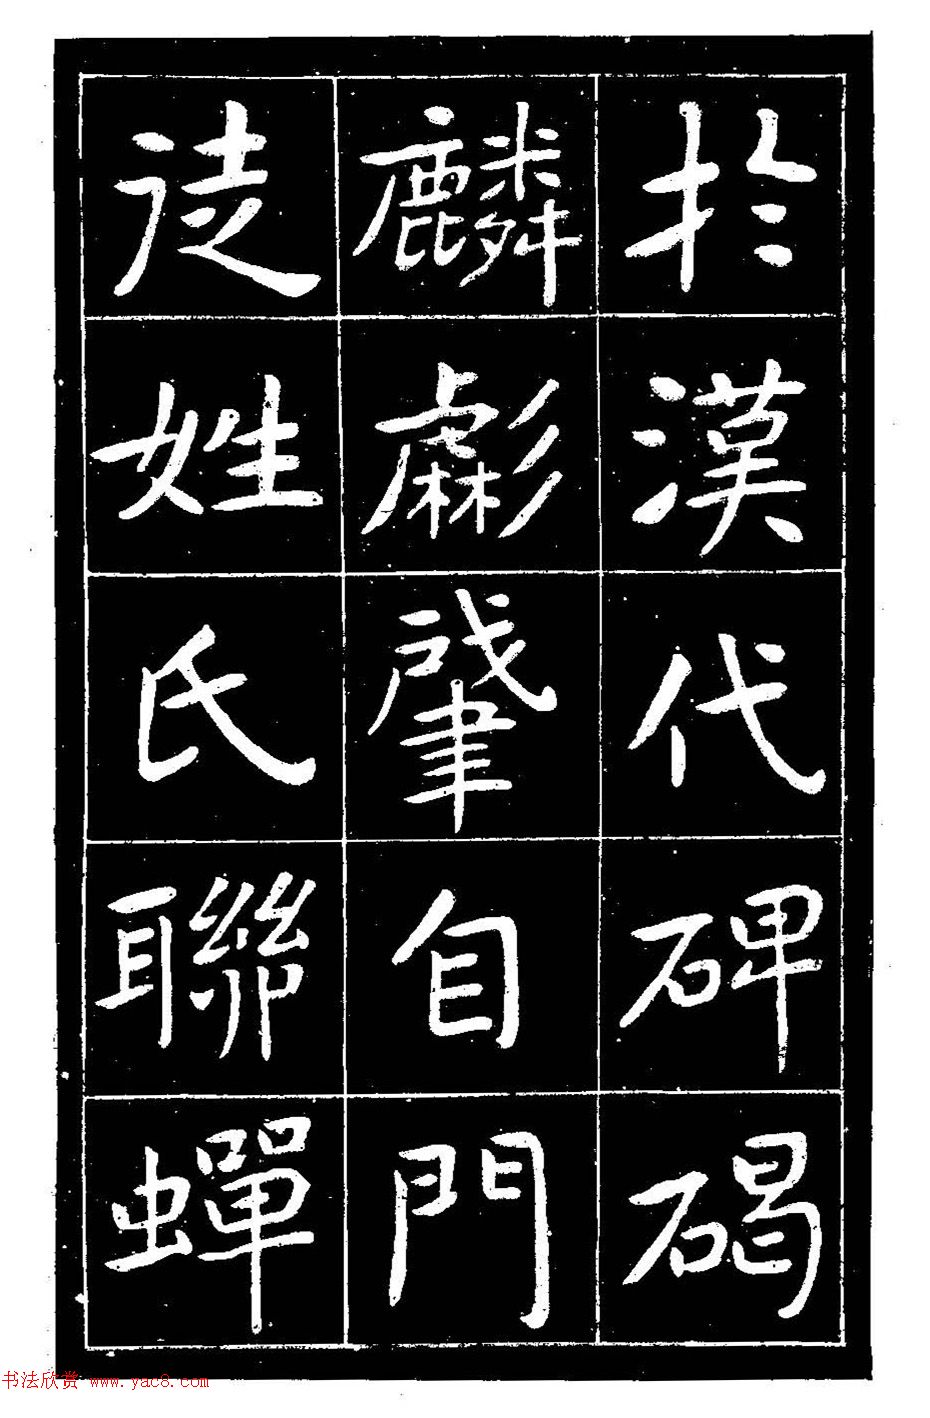 於漢代碑碣
麟虨肇自門
徒姓氏聯蟬
书法欣赏 www.yac8.com